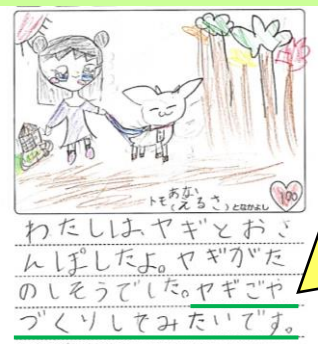 あない
トモ(えるさ)となかよし
100
わたしは、ヤギとおさ
んぽしたよ。ヤギがた
のしそうでした。ヤギごや
づくりしてみたいです。